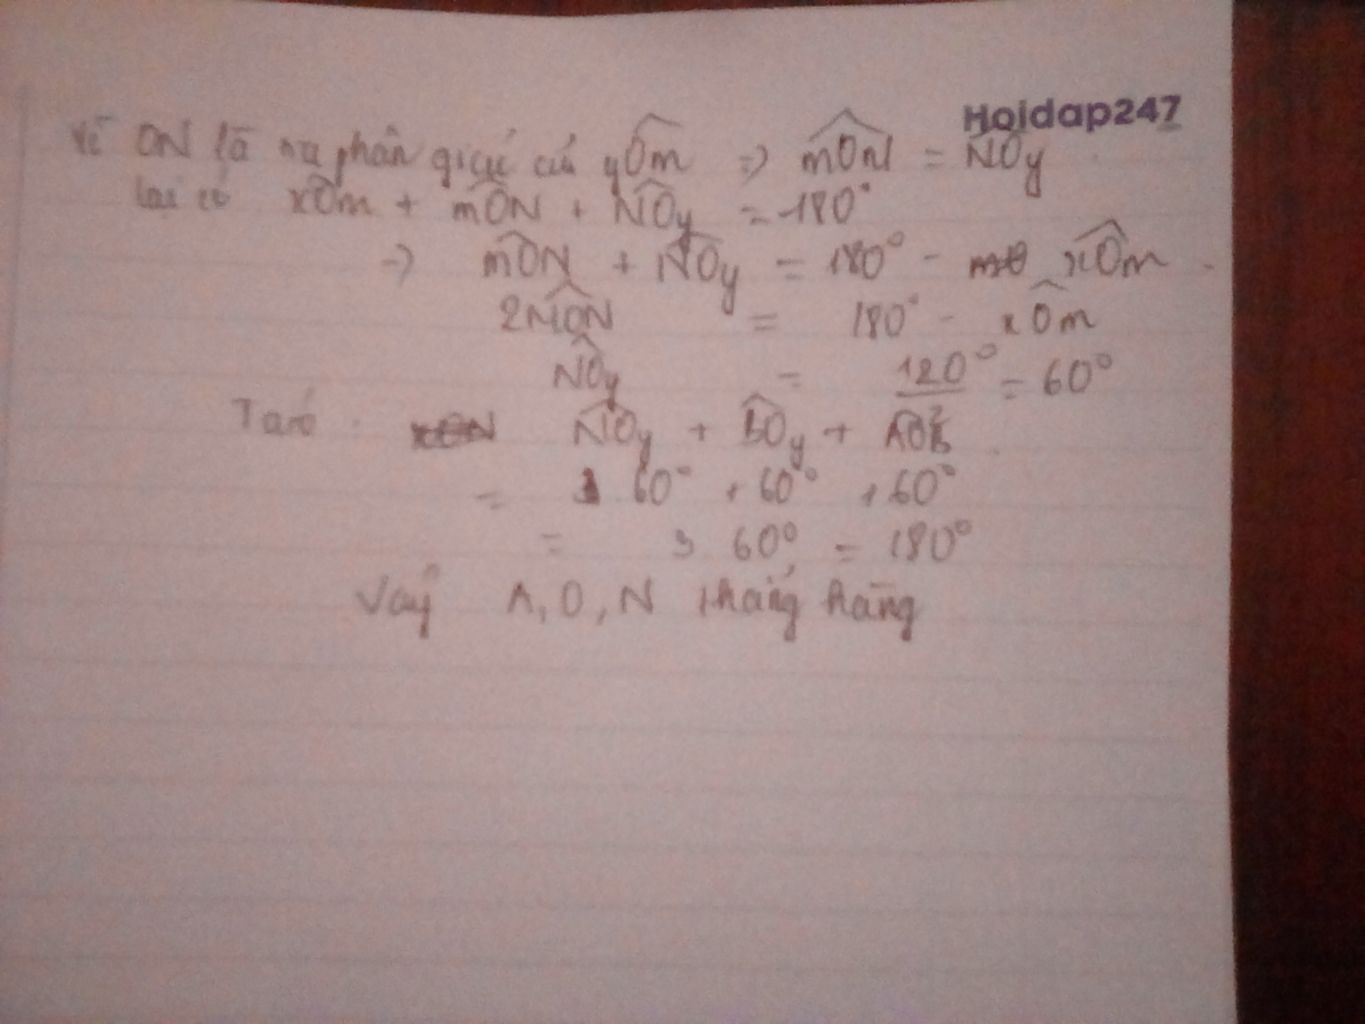 Hoidap247
Vì ON là tia phân giác của yÔm => mÔN = NÔy
lại có xÔm + mÔN + NÔy = 180°
=> mÔN + NÔy = 180° - xÔm
2MÔN = 180° - xÔm
NÔy = 120°/2 = 60°
Ta có : NÔy + BÔy + AÔB
= 60° + 60° + 60°
= 3 60° = 180°
Vậy A, O, N thẳng hàng